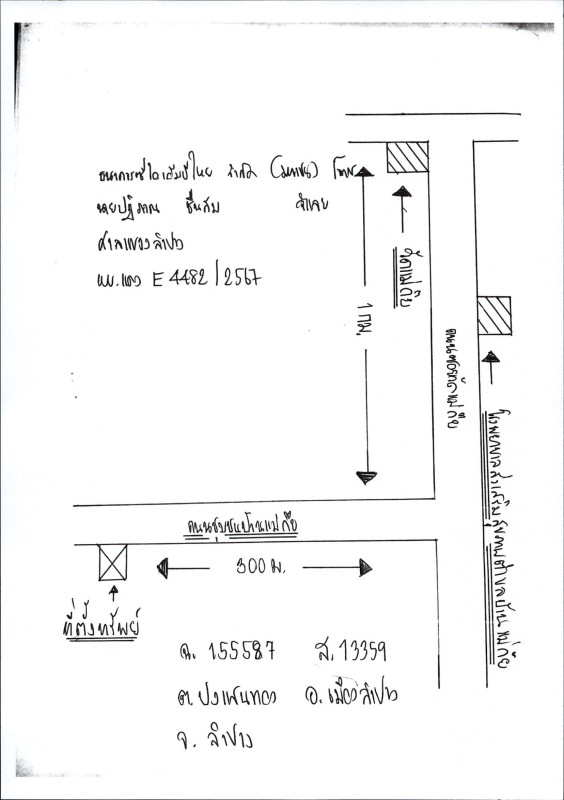 ธนาคารซีไอเอ็มบีไทย จำกัด (มหาชน) โจทก์
นายปฏิภาณ ชื่นสม จำเลย
ศาลแขวงลำปาง
ผบ.แดง E 4482/2567
วัดแม่กืย
1 กม.
ถนนซอยวัดแม่กืย
โรงพยาบาลส่งเสริมสุขภาพตำบลบ้านแม่กืย
ถนนชุมชนบ้านแม่กืย
300 ม.
ที่ตั้งทรัพย์
ฉ. 155587 ส. 13359
ต. ปงแสนทอง อ. เมืองลำปาง
จ. ลำปาง